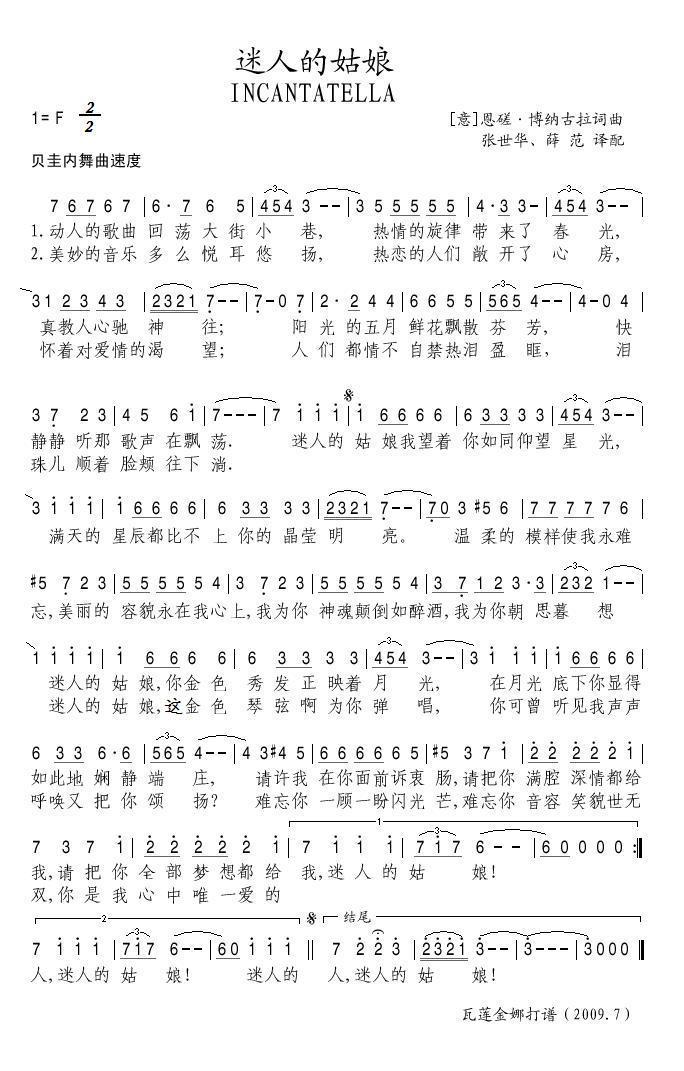 迷人的姑娘
INCANTATELLA
1= F 2/2
[意]恩磋·博纳古拉词曲
张世华、薛 范 译配
贝圭内舞曲速度
7 6 7 6 7 | 6· 7 6 5 | 4 5 4 3 - - | 3 5 5 5 5 5 | 4· 3 3 - | 4 5 4 3 - - |
1.动人的歌曲 回 荡 大 街 小 巷, 热情的旋律 带 来 了 春 光,
2.美妙的音乐 多 么 悦 耳 悠 扬, 热恋的人们 敞 开 了 心 房,
3 1 2 3 4 3 | 2 3 2 1 7 - - | 7 - 0 7 | 2· 2 4 4 | 6 6 5 5 6 6 | 5 6 5 4 - - | 4 - 0 4 |
真教人心驰 神 往; 阳 光 的五月 鲜花飘散 芬 芳, 快
怀着对爱情的渴 望; 人 们 都情不 自禁热泪 盈 眶, 泪
3 7 2 3 | 4 5 6 1 | 7 - - - | 7 1 1 1 | 1 6 6 6 6 | 6 3 3 3 3 | 4 5 4 3 - - |
静静 听那 歌声 在飘 荡. 迷人的 姑 娘我望着 你如同仰望 星 光,
珠儿 顺着 脸颊 往下 淌.
3 1 1 1 | 1 6 6 6 6 | 6 3 3 3 3 | 2 3 2 1 7 - - | 7 0 3 #5 6 | 7 7 7 7 7 6 |
满天的 星辰都比不 上 你的 晶莹 明 亮。 温 柔的 模样使我永难
#5 7 2 3 | 5 5 5 5 5 4 | 3 7 2 3 | 5 5 5 5 5 4 | 3 7 1 2 3 · 3 | 2 3 2 1 - - |
忘,美丽的 容貌永在我心上,我为你 神魂颠倒如醉酒,我为你朝 思暮 想
1 1 1 1 | 1 6 6 6 | 6 3 3 3 3 | 4 5 4 3 - - | 3 1 1 1 | 1 6 6 6 6 |
迷人的 姑 娘,你金色 秀 发 正 映着 月 光, 在月光 底下你显得
迷人的 姑 娘,这金色 琴 弦啊 为你 弹 唱, 你可曾 听见我声声
6 3 3 6·6 | 5 6 5 4 - - | 4 3 #4 5 | 6 6 6 6 6 6 | #5 3 7 1 | 2 2 2 2 2 1 |
如此地 娴 静 端 庄, 请许我 在你面前诉衷 肠,请把你 满腔 深情都给
呼唤又 把 你 颂 扬? 难忘你 一顾一盼闪光 芒,难忘你 音容 笑貌世无
7 3 7 1 | 2 2 2 2 1 | 7 1 1 1 | 7 1 7 6 - - | 6 0 0 0 0 :|
1
我,请 把 你 全 部 梦 想都 给 我,迷 人 的 姑 娘!
双,你 是 我 心 中 唯 一爱 的
2
结尾
7 1 1 1 | 7 1 7 6 - - | 6 0 1 1 1 || 7 2 2 3 | 2 3 2 1 3 - - | 3 0 0 0 ||
人,迷人的 姑 娘! 迷人的 人,迷人的 姑 娘!
瓦莲金娜打谱(2009.7)